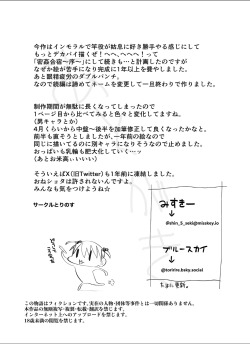 今作はインモラルで竿役が姑息に好き勝手やる感じにして
もっとデカパイ描くぜ！へへ、へへへ！って
「密姦合宿～序～」にして続きも…と計画したのですが
なぜか絵が苦手になり完成に1年以上を費やしました。
あと眼精疲労のダブルパンチ。
なので続編は諦めてネームを変更して一旦終わりで作りました。
制作期間が無駄に長くなってしまったので
1ページ目から比べてみると色々と変化してますね。
（男キャラとか）
4月くらいから中盤～後半を加筆修正して良くなったかなと。
前半も直そうとしましたが、一年前の絵なので
同じに描いてるのに別キャラになりそうなので止めました。
おっぱいも乳輪も肥大化していく…ッ
（あとお米高ぃぃぃぃ）
そういえばX(旧Twitter)も1年前に凍結しました。
おねショタは許されないんですよ。
みんなも気をつけような☆
サークルとりのす
みすきー
↓
@shin_5_seki@misskey.io
ブルースカイ
↓
@toririre.bsky.social
たまに更新。
この物語はフィクションです。実在の人物・団体等事件とは一切関係ありません。
本作品の無断複写・複製・転載・翻訳を禁じます。
インターネット上へのアップロードを禁じます。
18歳未満の閲覧を禁じます。